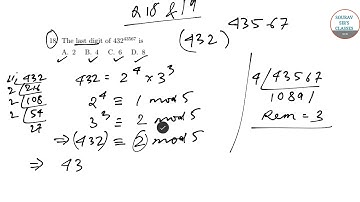 218 & 19
SOURAV SIR'S CLASSES
18. The last digit of 432^43567 is
A. 2 B. 4 C. 6 D. 8
(432)^43567
2, 432
2 216
2 108
2 54
27
432 = 2^4 × 3^3
2^4 ≡ 1 mod 5
3^3 ≡ 2 mod 5
⇒ (432) ≡ 2 mod 5
⇒ 43
4 43567
10891
Rem = 3